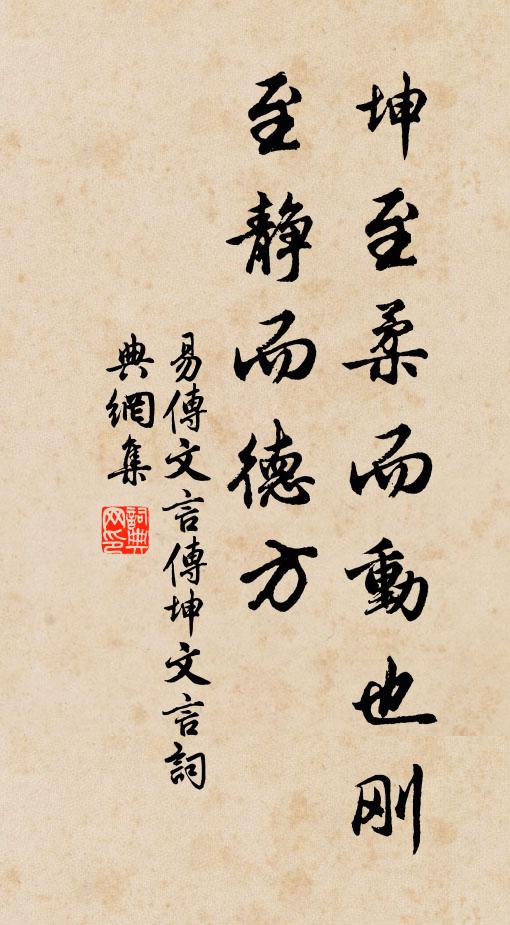 坤至柔而動也刚
至静而德方
易傳文言傳坤文言詞
典網集
詞典網印